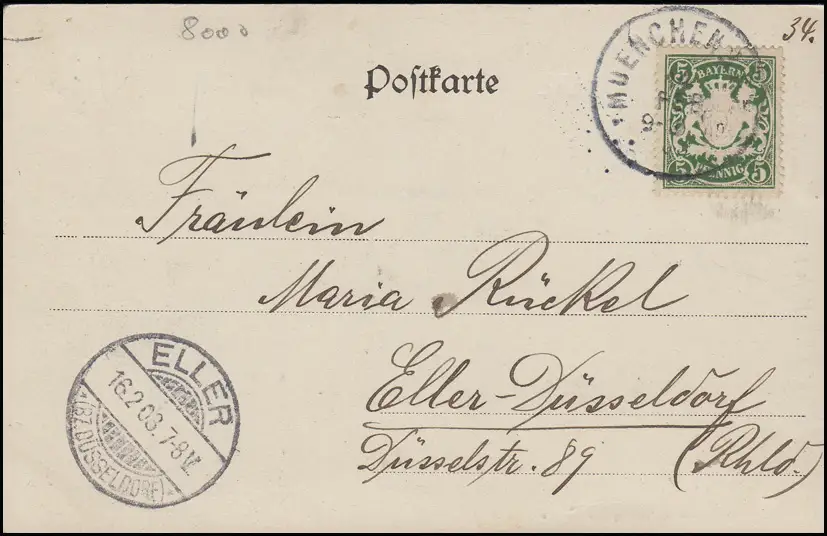 8000
34.
Postkarte
MUENCHEN
5 BAYERN 5
5 PFENNIG 5
Fräulein
Maria Rückel
Eller-Düsseldorf
Düsselstr. 89 (Rhld.)
ELLER
16.2.03. 7-8 V.
*(BZ. DÜSSELDORF)*